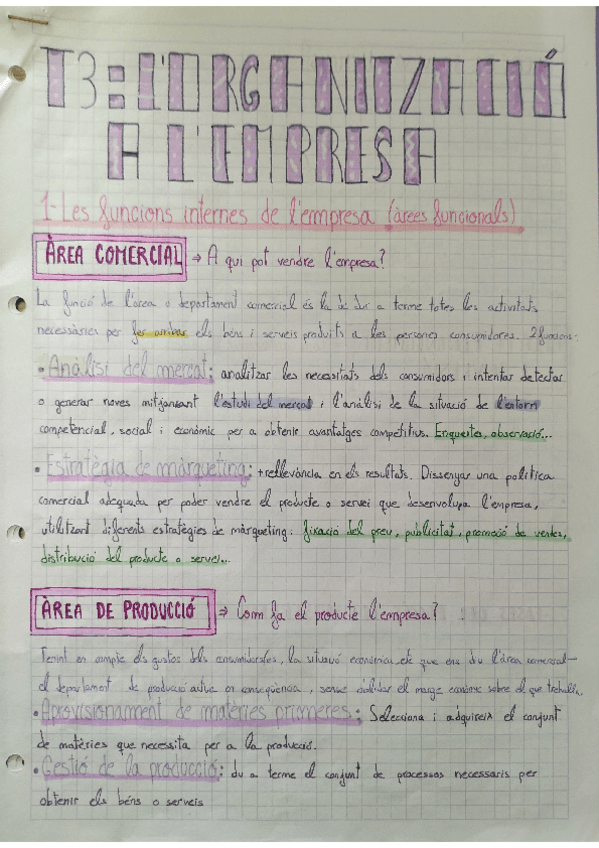 T3: L'ORGANITZACIÓ
A L'EMPRESA
1-Les funcions internes de l'empresa (àrees funcionals)
ÀREA COMERCIAL → A qui pot vendre l'empresa?
La funció de l'àrea o departament comercial és la de dur a terme totes les activitats
necessàries per fer arribar els béns i serveis produïts a les persones consumidores. 2 funcions:
• Anàlisi del mercat: analitzar les necessitats dels consumidors i intentar detectar
o generar noves mitjançant l'estudi del mercat i l'anàlisi de la situació de l'entorn
competencial, social i econòmic per a obtenir avantatges competitius. Enquestes, observació...
• Estratègia de màrqueting: +rellevància en els resultats. Dissenyar una política
comercial adequada per poder vendre el producte o servei que desenvolupa l'empresa,
utilitzant diferents estratègies de màrqueting: fixació del preu, publicitat, promoció de ventes,
distribució del producte o servei...
ÀREA DE PRODUCCIÓ → Com fa el producte l'empresa?
Tenint en compte els gustos dels consumidors/es, la situació econòmica, etc que ens du l'àrea comercial
el departament de producció actua en conseqüència, sense oblidar el marge econòmic sobre el que treballa.
• Aprovisionament de matèries primeres: Selecciona i adquireix el conjunt
de matèries que necessita per a la producció.
• Gestió de la producció: du a terme el conjunt de processos necessaris per
obtenir els béns o serveis